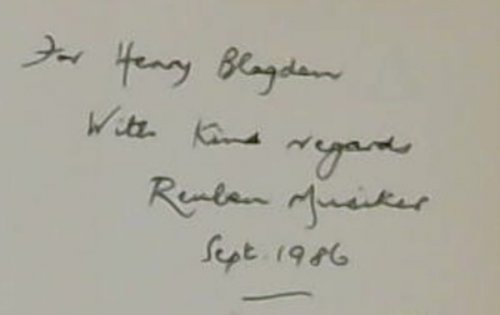 For Henry Blagden
With Kind regards
Reuben Musiker
Sept. 1986